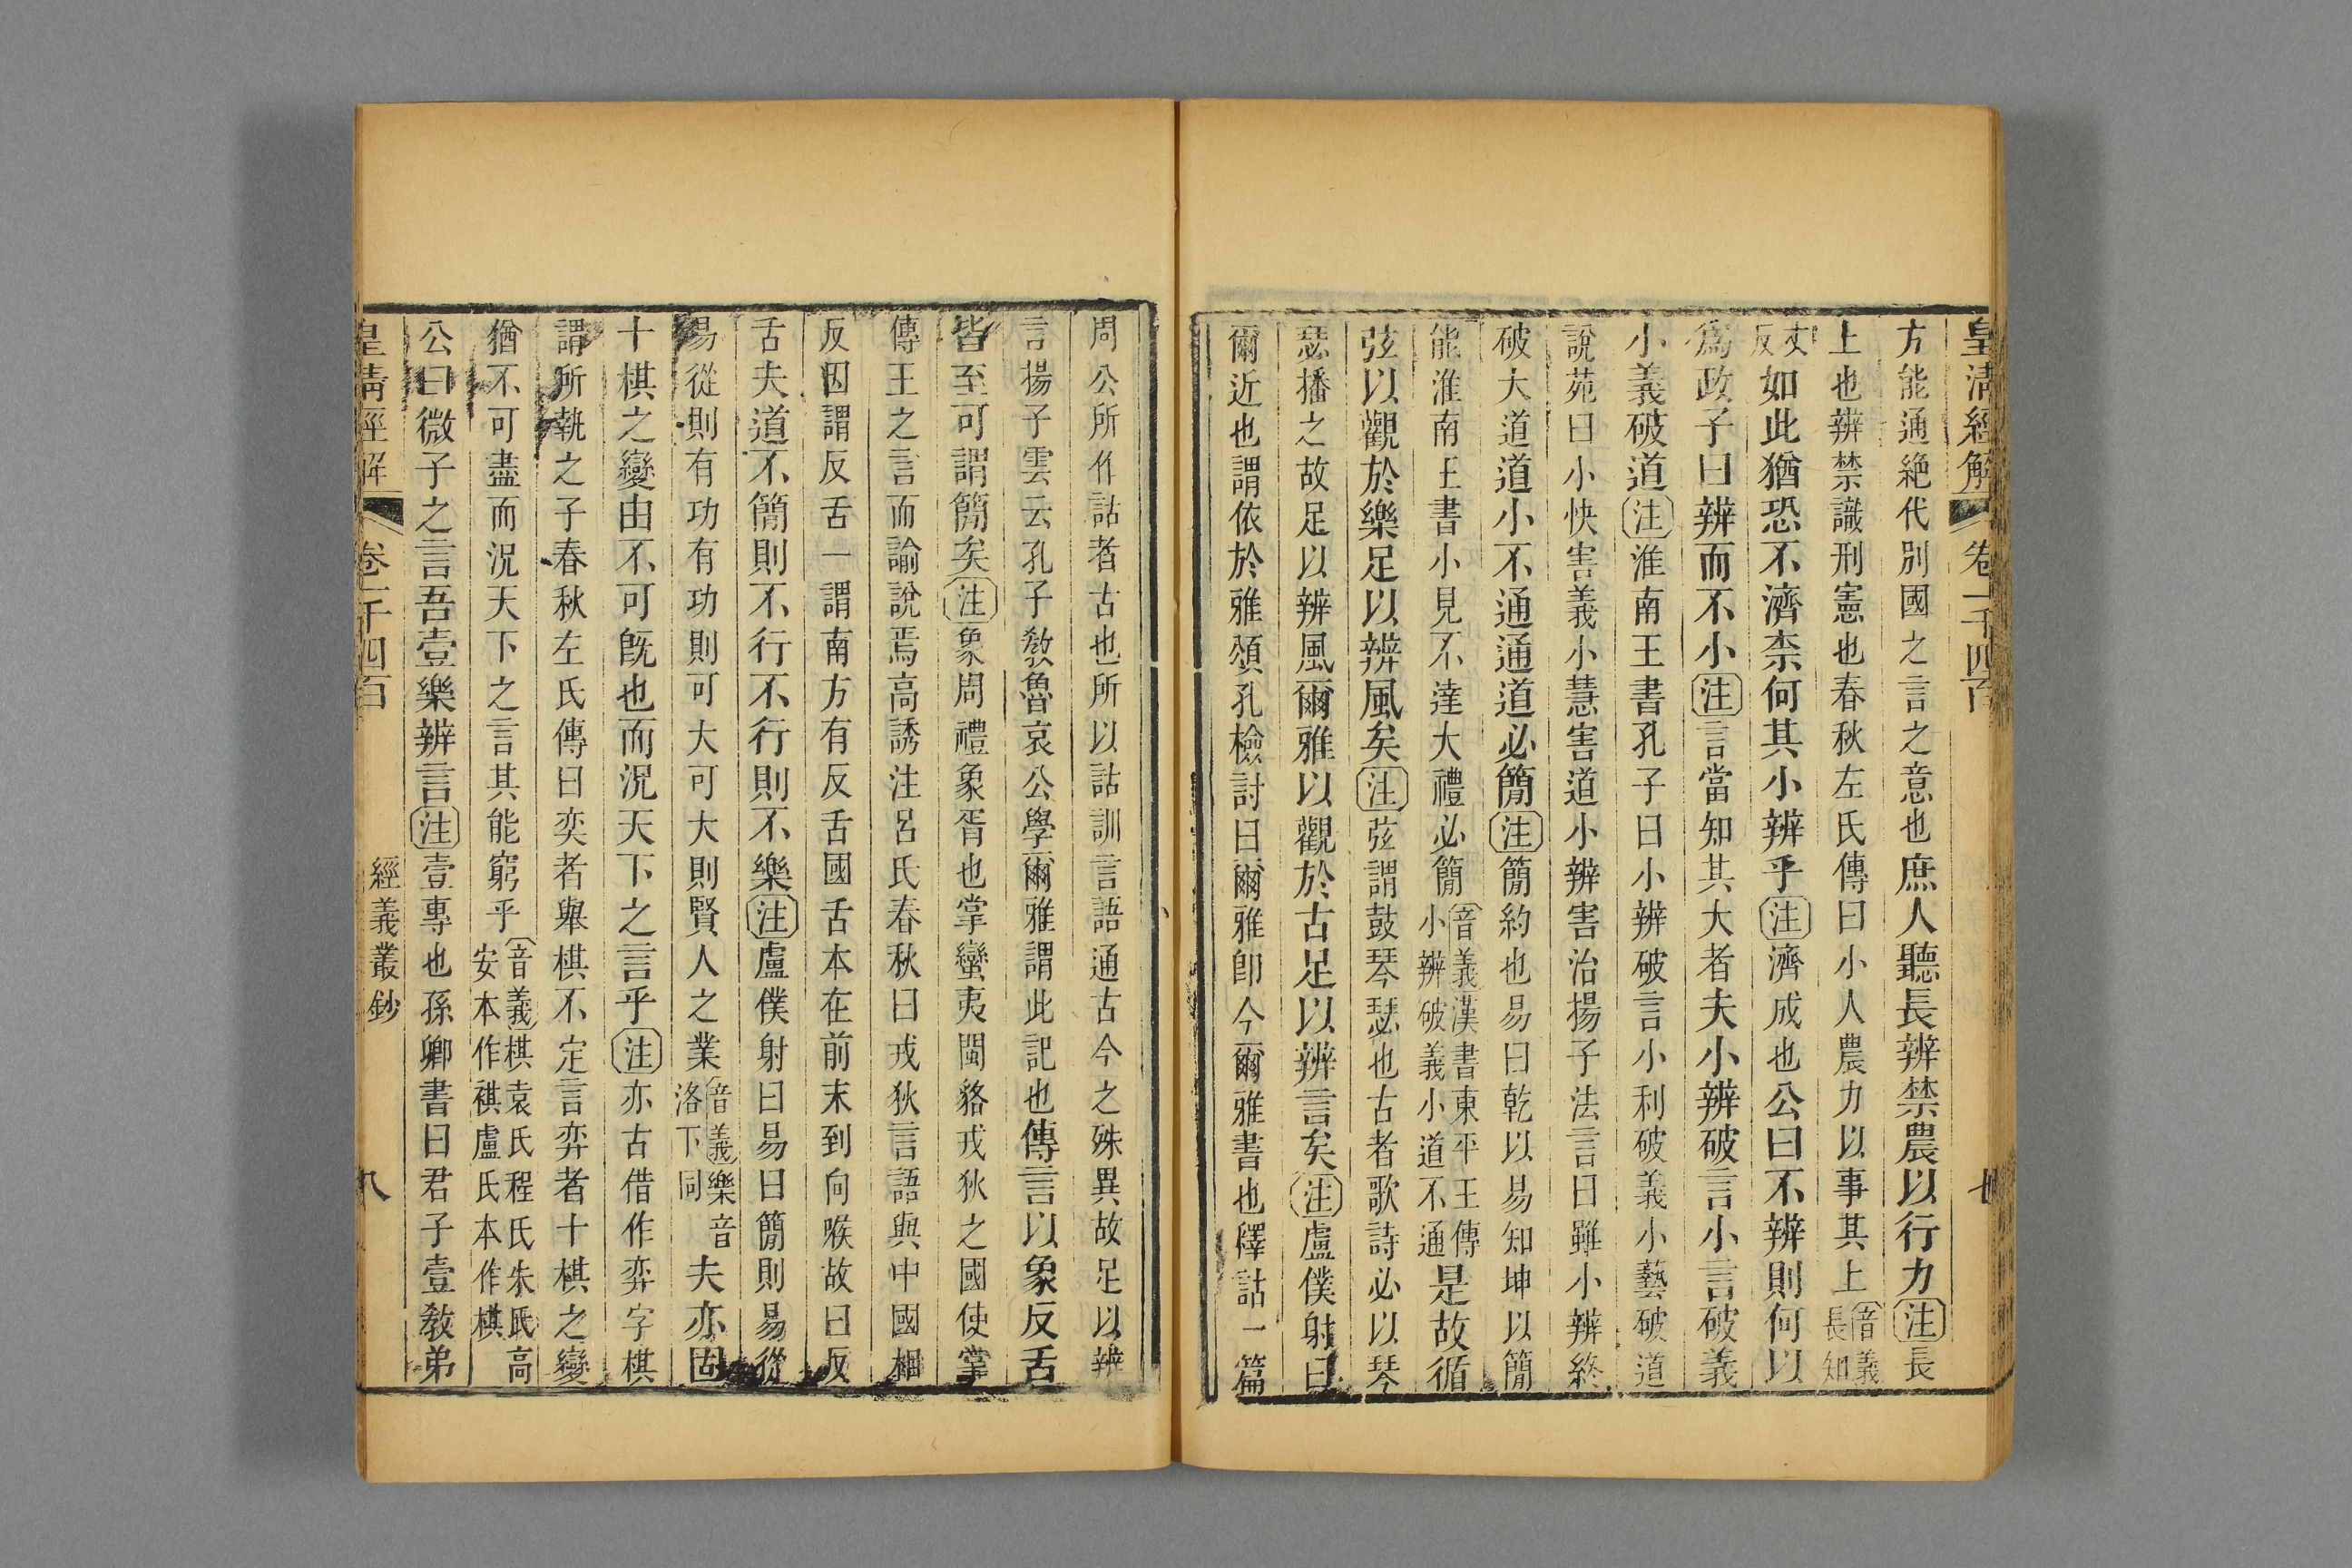 皇淸經解 卷一千四百 七
方能通絶代別國之言之意也庶人聽長辨禁農以行力注長
上也辨禁識刑憲也春秋左氏傳曰小人農力以事其上音義長知
丈反如此猶恐不濟柰何其小辨乎注濟成也公曰不辨則何以
爲政子曰辨而不小注言當知其大者夫小辨破言小言破義
小義破道注淮南王書孔子曰小辨破言小利破義小藝破道
說苑曰小快害義小慧害道小辨害治揚子法言曰雖小辨終
破大道道小不通通道必簡注簡約也易曰乾以易知坤以簡
能淮南王書小見不達大禮必簡音義漢書東平王傳小辨破義小道不通是故循
弦以觀於樂足以辨風矣注弦謂鼓琴瑟也古者歌詩必以琴
瑟播之故足以辨風爾雅以觀於古足以辨言矣注盧僕射曰
爾近也謂依於雅頌孔檢討曰爾雅卽今爾雅書也釋詁一篇
周公所作詁者古也所以詁訓言語通古今之殊異故足以辨
言揚子雲云孔子敎魯哀公學爾雅謂此記也傳言以象反舌
皆至可謂簡矣注象周禮象胥也掌蠻夷閩貉戎狄之國使掌
傳王之言而諭說焉高誘注呂氏春秋曰戎狄言語與中國相
反因謂反舌一謂南方有反舌國舌本在前末到向喉故曰反
舌夫道不簡則不行不行則不樂注盧僕射曰易曰簡則易從
易從則有功有功則可大可大則賢人之業音義樂音洛下同夫亦固
十棋之變由不可旣也而況天下之言乎注亦古借作弈字棋
謂所執之子春秋左氏傳曰奕者舉棋不定言弈者十棋之變
猶不可盡而況天下之言其能窮乎音義棋袁氏程氏朱氏高安本作祺盧氏本作棋
公曰微子之言吾壹樂辨言注壹專也孫卿書曰君子壹敎弟
皇淸經解 卷一千四百 經義叢鈔 八